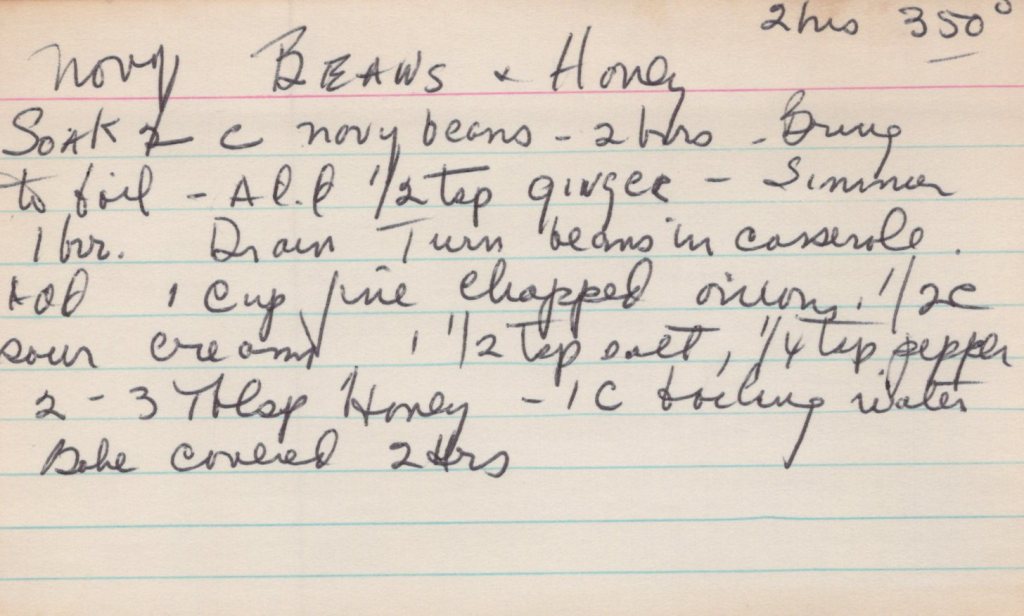 2 hrs 350°
Navy BEANS + Honey
SOAK 2 C navy beans - 2 hrs - Bring
to boil - Add 1/2 tsp ginger - Simmer
1 hr. Drain Turn beans in casserole.
Add 1 Cup fine chopped onion, 1/2 C
sour cream, 1 1/2 tsp salt, 1/4 tsp. pepper
2 - 3 Tblsp Honey - 1 C boiling water
Bake covered 2 Hrs